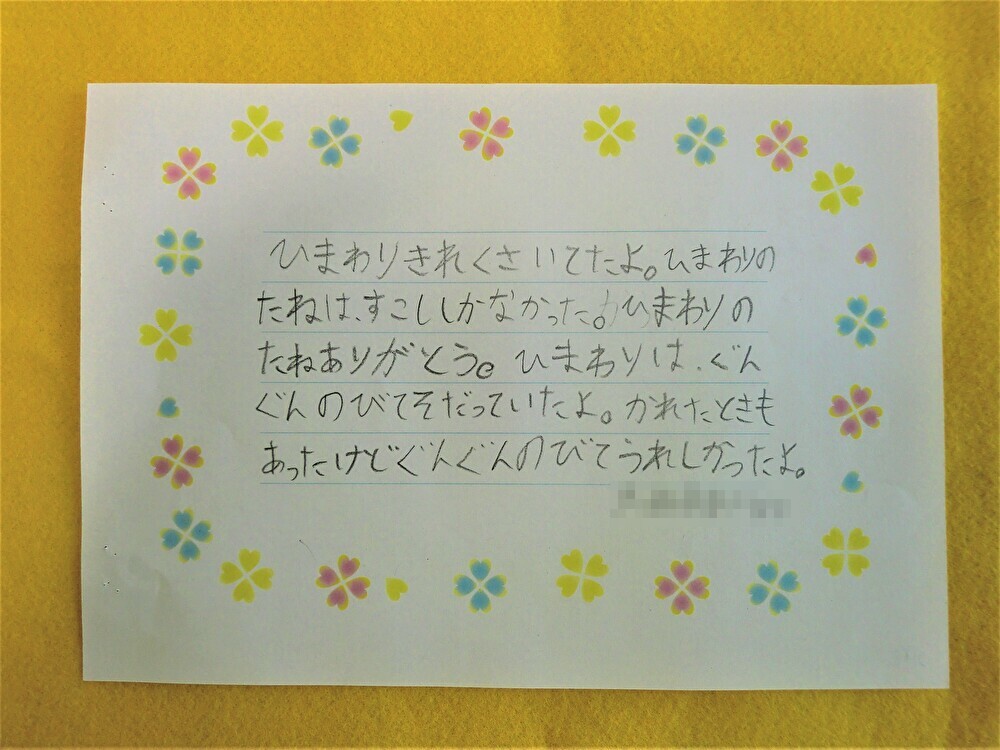 ひまわりきれくさいてたよ。ひまわりの
たねは、すこししかなかった。ひまわりの
たねありがとう。ひまわりは、ぐん
ぐんのびてそだっていたよ。かれたときも
あったけどぐんぐんのびてうれしかったよ。